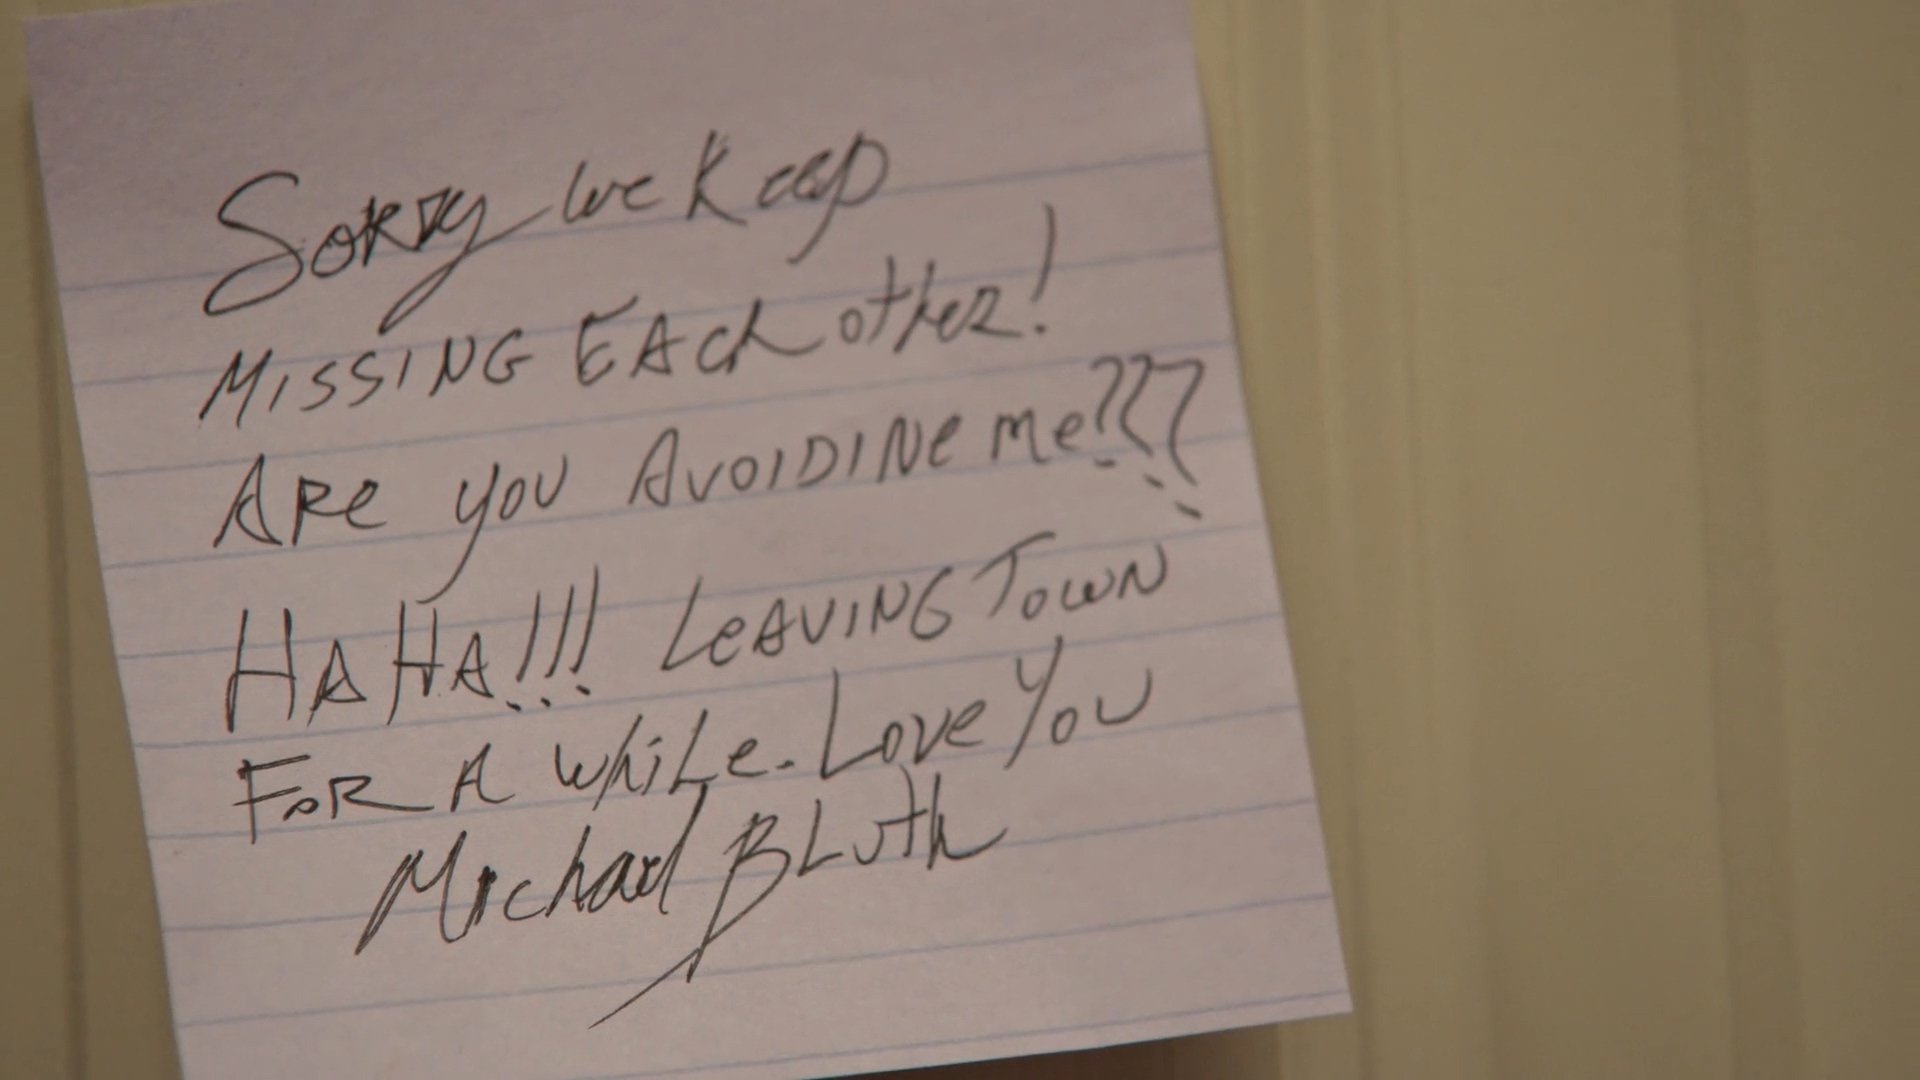 Sorry we keep
MISSING EACh other!
ARe you AVOIDINe me???
HAHA!!! LeAVING TOWN
FOR A whiLe. Love You
Michael BLuth